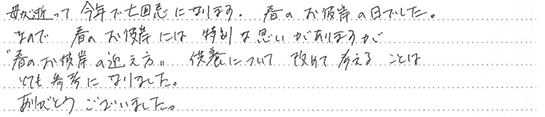 母が逝って 今年で七回忌になります. 春の お彼岸の日でした。
なので 春のお彼岸には 特別な思いがありますが
"春のお彼岸の迎え方" 供養について 改めて 考える ことは
とても 参考に なりました。
ありがとう ございました。